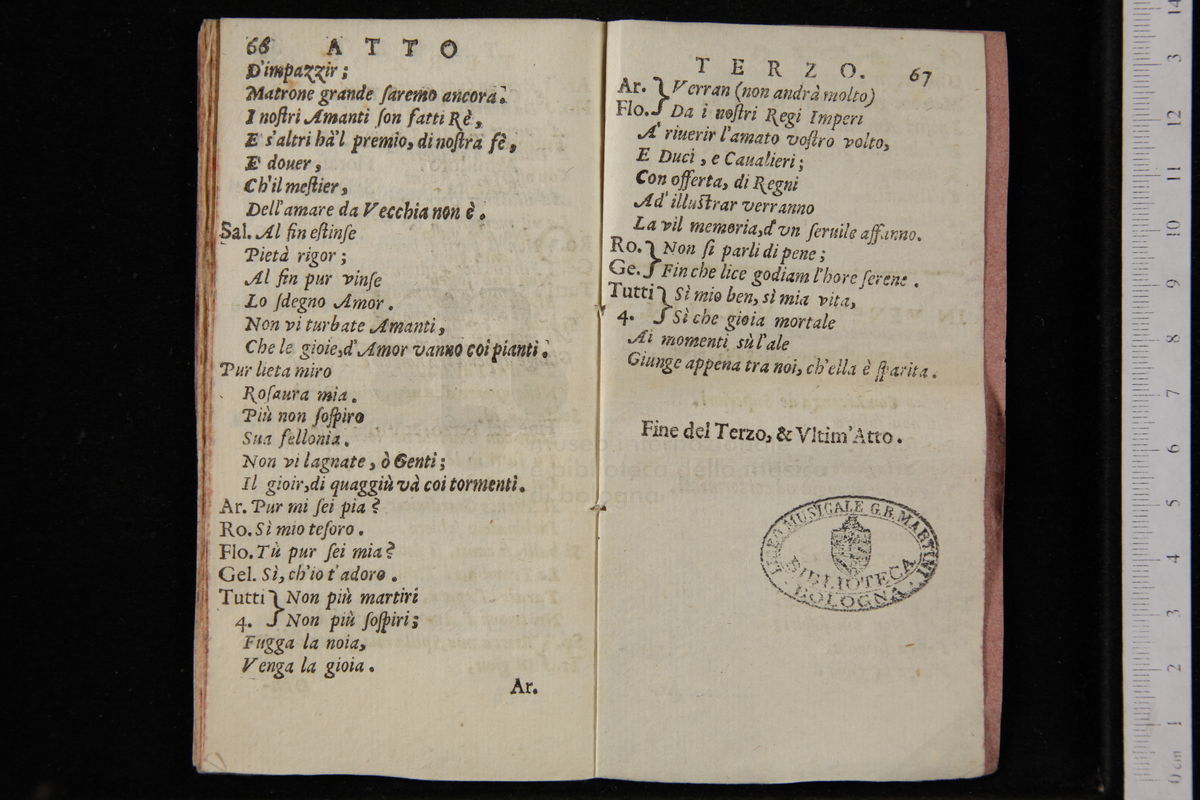 66 ATTO
D'impazzir;
Matrone grande ſaremo ancora.
I noſtri Amanti ſon fatti Rè,
E s'altri hà'l premio, di noſtra fè,
E' douer,
Ch'il meſtier,
Dell'amare da Vecchia non è.
Sal. Al fin eſtinſe
Pietà rigor;
Al fin pur vinſe
Lo ſdegno Amor.
Non vi turbate Amanti,
Che le gioie, d'Amor vanno coi pianti.
Pur lieta miro
Roſaura mia.
Più non ſoſpiro
Sua fellonia.
Non vi lagnate, ò Genti;
Il gioir, di quaggiù và coi tormenti.
Ar. Pur mi ſei pia?
Ro. Sì mio teſoro.
Flo. Tù pur ſei mia?
Gel. Sì, ch'io t'adoro.
Tutti } Non più martiri
4. } Non più ſoſpiri;
Fugga la noia,
Venga la gioia.
Ar.
TERZO. 67
Ar. } Verran (non andrà molto)
Flo. } Da i noſtri Regi Imperi
A' riuerir l'amato voſtro volto,
E Duci, e Caualieri;
Con offerta, di Regni
Ad' illuſtrar verranno
La vil memoria, d'vn ſeruile affanno.
Ro. } Non ſi parli di pene;
Ge. } Fin che lice godiam l'hore ſerene.
Tutti } Sì mio ben, sì mia vita,
4. } Sì che gioia mortale
Ai momenti sù l'ale
Giunge appena tra noi, ch'ella è ſparita.
Fine del Terzo, & Vltim'Atto.
museo internazionale
e biblioteca della musica
di bologna
LICEO MUSICALE G.B. MARTINI
BIBLIOTECA
BOLOGNA
0 cm 1 2 3 4 5 6 7 8 9 10 11 12 3 14